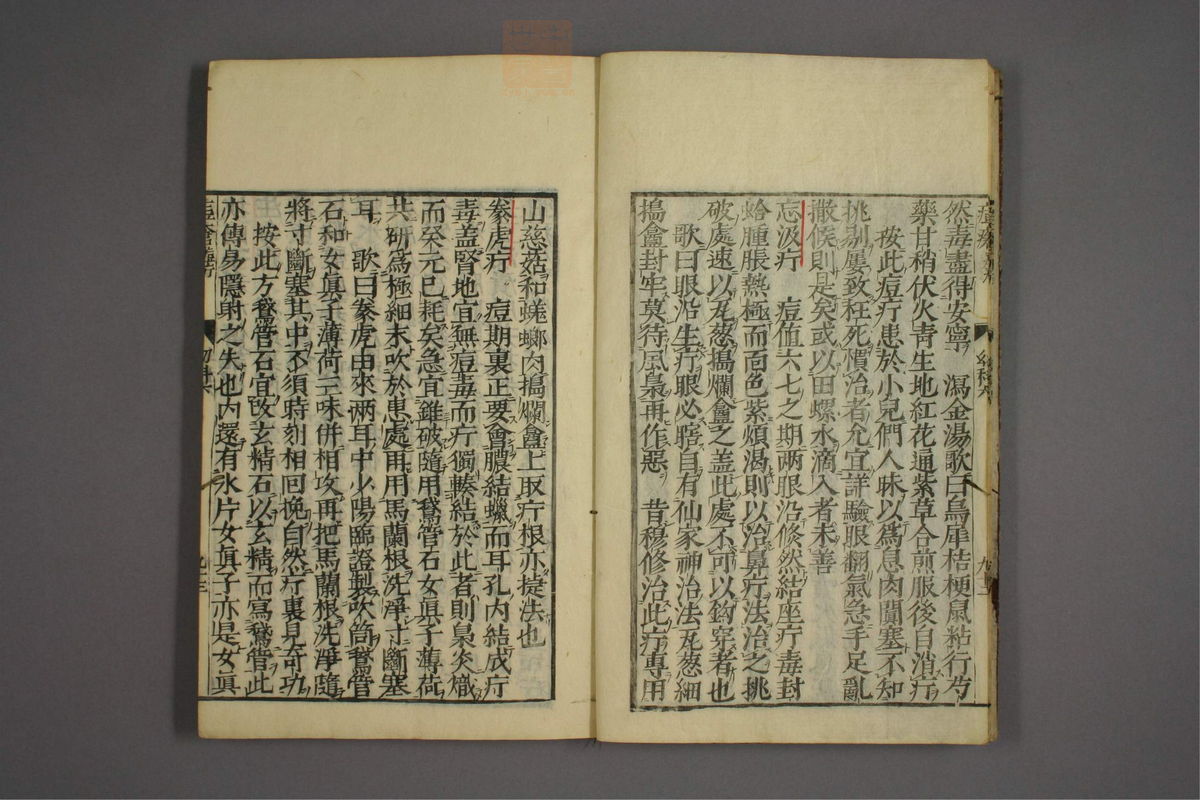 然毒盡得安寧　瀉金湯歌曰烏犀桔梗鼠粘行芍
藥甘稍伏火靑生地紅花通紫草合煎服後自消疔
按此痘疔患於小兒們人昧以爲息肉闐塞不知
挑剔屢致枉死慣治者允宜詳驗眼翻氣急手足亂
撒候則是矣或以田螺水滴入者未善
忘汲疔　痘值六七之期兩眼沿倏然結座疔毒封
蛤腫脹熱極而面色紫煩渴則以治鼻疔法治之挑
破處速以瓦葱搗爛盦之蓋此處不可以鈎穿者也
歌曰眼沿生疔眼必瞎自有仙家神治法瓦葱細
搗盦封牢莫待風梟再作惡　昔穆修治此疔專用
山慈菇和蜣螂肉搗爛盦上取疔根亦捷法也
豢虎疔　痘期裏正要會膿結蠟而耳孔內結成疔
毒蓋腎地宜無痘毒而疔獨輳結於此者則梟炎熾
而榮元已耗矣急宜錐破隨用鵞管石女眞子薄荷
共研爲極細末吹於患處再用馬蘭根洗淨寸斷塞
耳　歌曰豢虎由來兩耳中少陽臨證製吹筒鵞管
石和女眞子薄荷三味併相攻再把馬蘭根洗淨隨
將寸斷塞其中不須時刻相回挽自然疔裏見奇功
按此方鵞管石宜改玄精石以玄精而寫鵞管此
亦傳昜隱射之失也內還有氷片女眞子亦是女眞